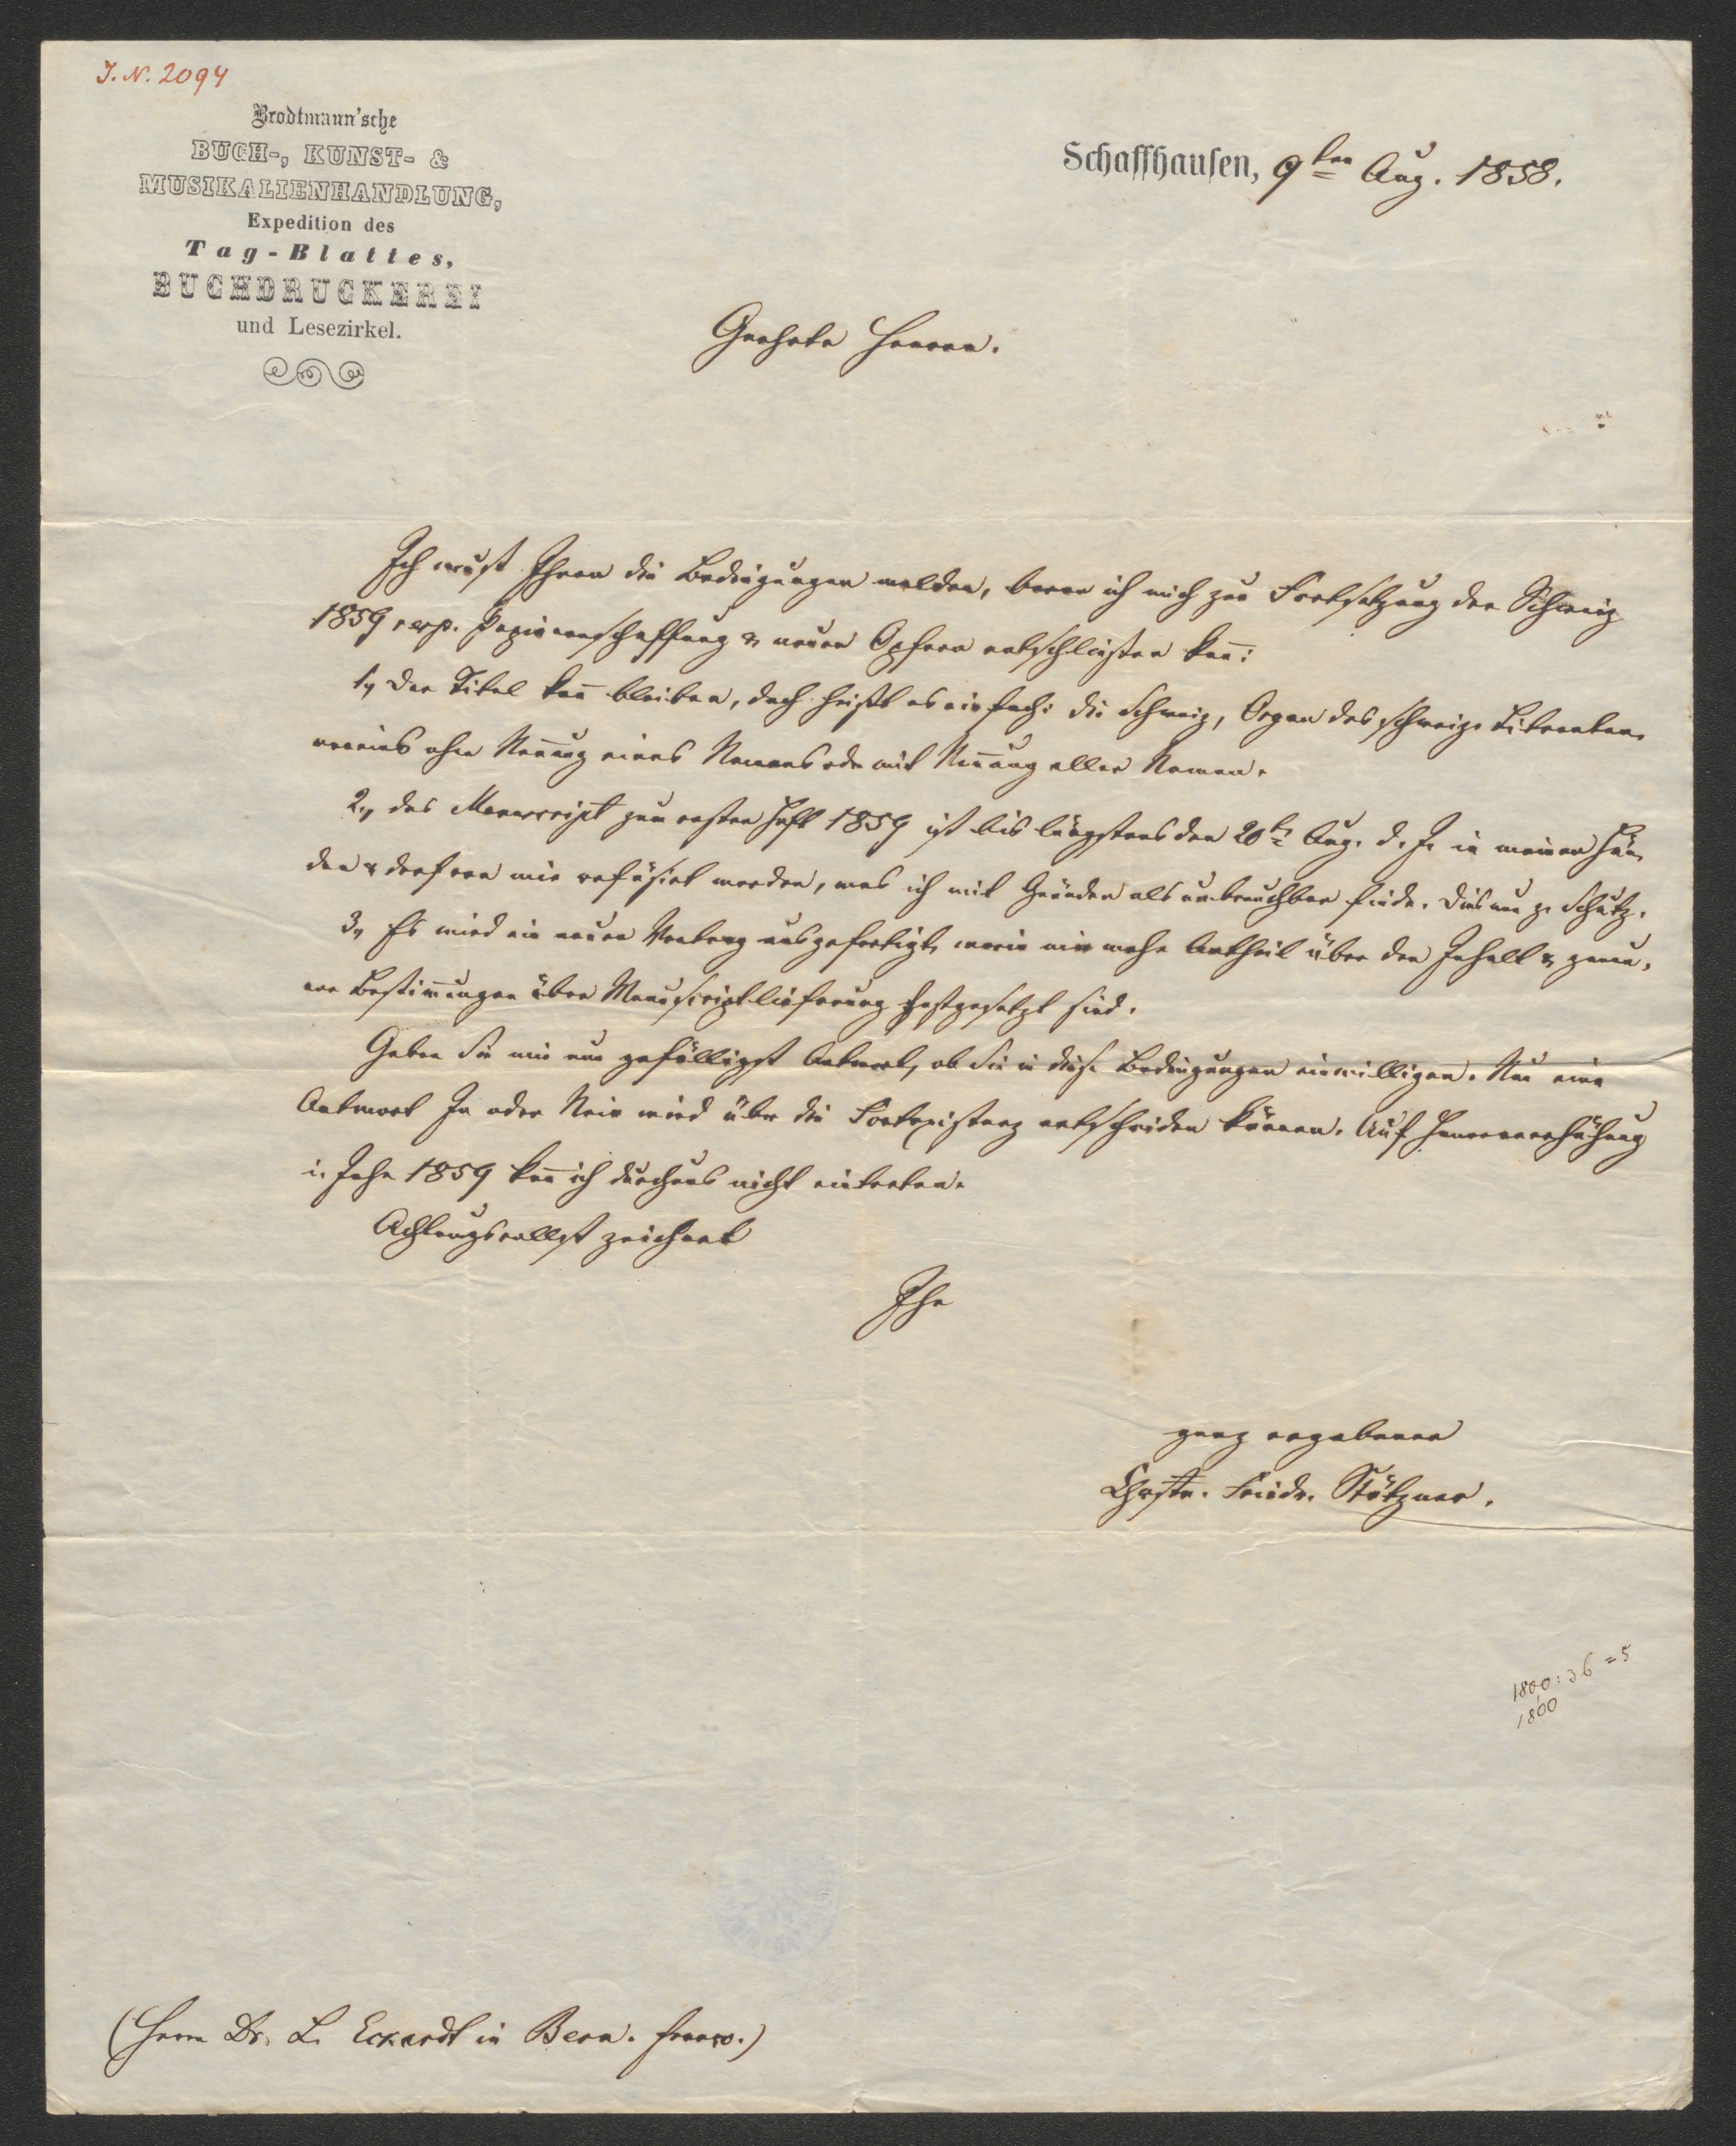 J. N. 2094
Brodtmann'sche
BUCH-, KUNST- &
MUSIKALIENHANDLUNG,
Expedition des
Tag-Blattes,
BUCHDRUCKEREI
und Lesezirkel.
Schaffhausen, 9ten Aug. 1858.
Geehrte Herren.
Ich muß Ihnen die Bedingungen melden, bevor ich mich zur Fortsetzung der Schweiz
1859 resp. Papieranschaffung & neuen Opfern entschließen kan̄:
1, Der Titel kan̄ bleiben, doch heißt es einfach: die Schweiz, Organ des schweiz. Literaten-
vereins ohne Nen̄ung eines Namens oder mit Nen̄ung aller Namen.
2, das Manuscript zum ersten Heft 1859 ist bis längstens den 20t Aug. d. J. in meinen Hän-
den & darf von mir refüsirt werden, was ich mit Gründen als unbrauchbar finde. Dies nur z. Schutz.
3, Es wird ein neuer Vertrag ausgefertigt, worin mir mehr Antheil über den Inhalt & genau-
ere Bestim̄ungen über Manuscriptlieferung festgesetzt sind.
Geben Sie mir nun gefälligst Antwort, ob Sie in diese Bedingungen einwilligen. Nur eine
Antwort Ja oder Nein wird über die Fortexistenz entscheiden können. Auf Honorarerhöhung
i. Jahr 1859 kan̄ ich durchaus nicht eintreten.
Achtungsvollst zeichnet
Ihr
ganz ergebener
Chrstn. Friedr. Stötzner.
1800 : 36 = 5
1800
(Herrn Dr. L. Eckardt in Bern. franco.)